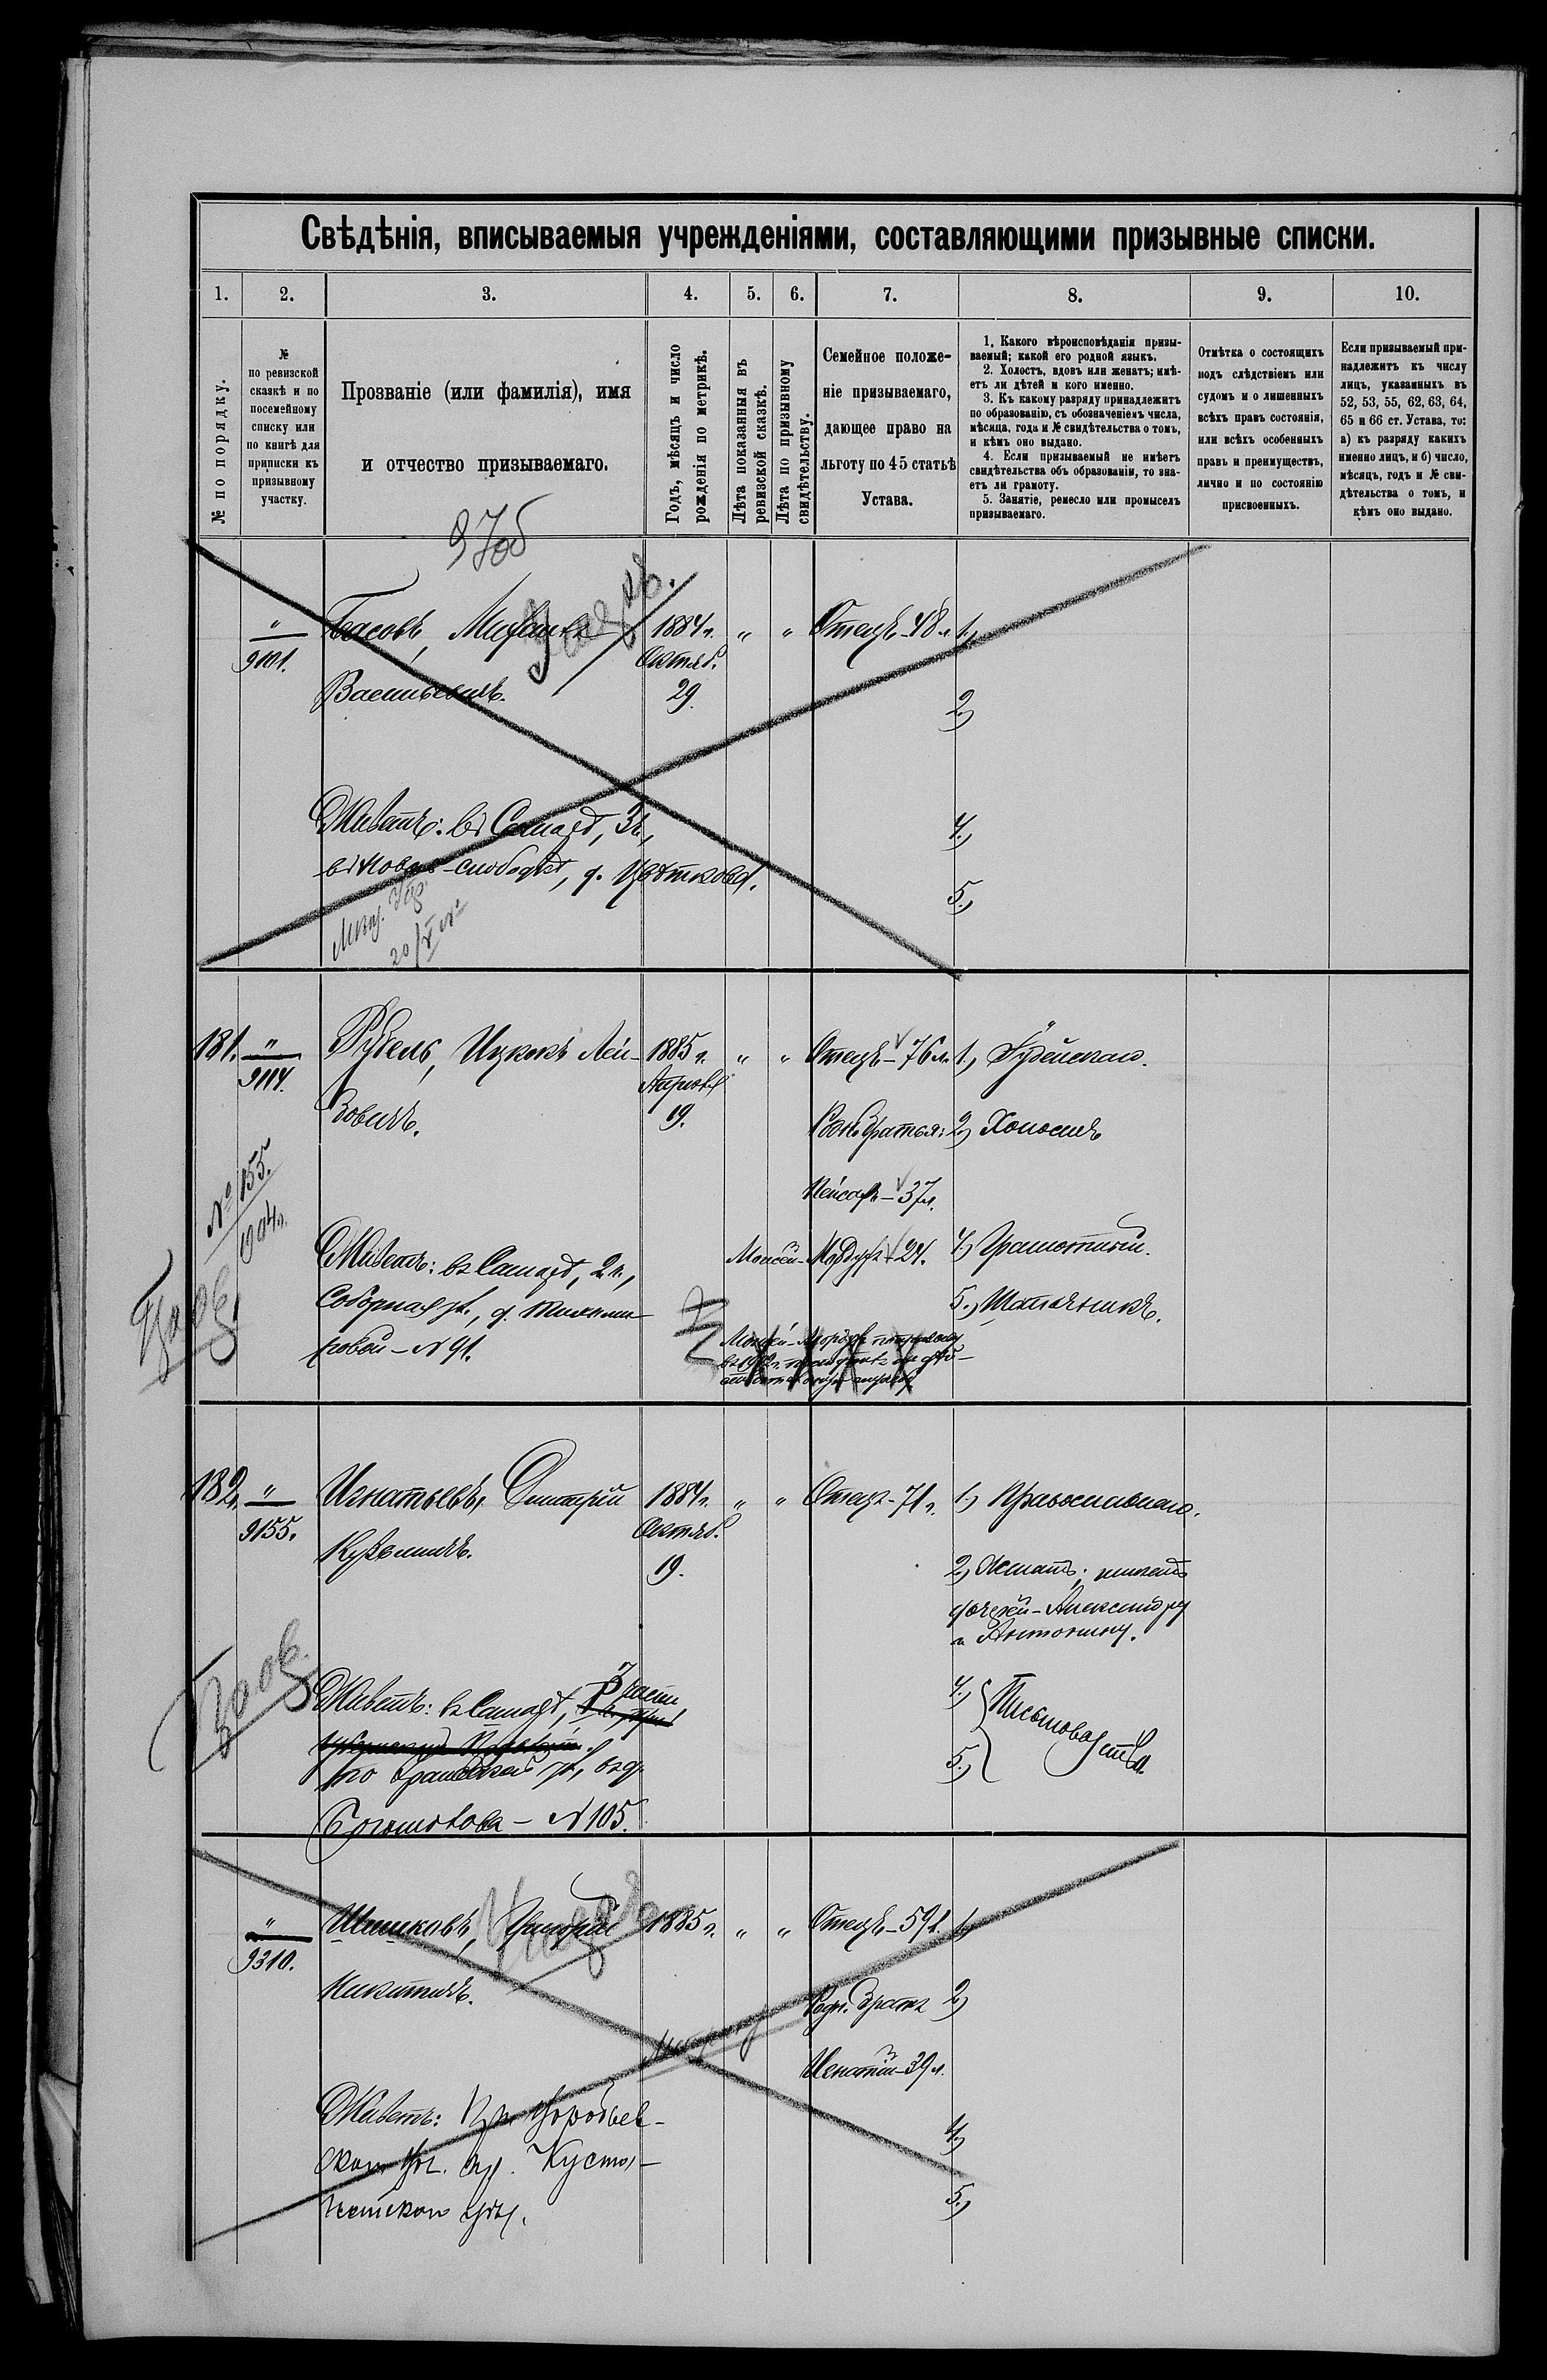 Свѣдѣнія, вписываемыя учрежденіями, составляющими призывные списки.
1. 2. 3. 4. 5. 6. 7. 8. 9. 10.
№ по порядку.
№
по ревизской
сказкѣ и по
посемейному
списку или
по книгѣ для
приписки къ
призывному
участку.
Прозваніе (или фамилія), имя
и отчество призываемаго.
Годъ, мѣсяцъ и число
рожденія по метрикѣ.
Лѣта показанныя въ
ревизской сказкѣ.
Лѣта по призывному
свидѣтельству.
Семейное положе-
ніе призываемаго,
дающее право на
льготу по 45 статьѣ
Устава.
1. Какого вѣроисповѣданія призы-
ваемый; какой его родной языкъ.
2. Холостъ, вдовъ или женатъ; имѣ-
етъ ли дѣтей и кого именно.
3. Къ какому разряду принадлежитъ
по образованію, съ обозначеніемъ числа,
мѣсяца, года и № свидѣтельства о томъ,
и кѣмъ оно выдано.
4. Если призываемый не имѣетъ
свидѣтельства объ образованіи, то зна-
етъ ли грамоту.
5. Занятіе, ремесло или промыселъ
призываемаго.
Отмѣтка о состоящихъ
подъ слѣдствіемъ или
судомъ и о лишенныхъ
всѣхъ правъ состоянія,
или всѣхъ особенныхъ
правъ и преимуществъ,
лично и по состоянію
присвоенныхъ.
Если призываемый при-
надлежитъ къ числу
лицъ, указанныхъ въ
52, 53, 55, 62, 63, 64,
65 и 66 ст. Устава, то:
а) къ разряду какихъ
именно лицъ, и б) число,
мѣсяцъ, годъ и № сви-
дѣтельства о томъ, и
кѣмъ оно выдано.
" Басовъ, Михаилъ 1884 г. " " Отецъ - 48 л. 1.)
9101. Октяб.
Васильевичъ. 29. 2.)
Живетъ: въ Самарѣ, 3 ч., 4.)
въ Новой-слободкѣ, д. Цвѣткова. 5.)
181. " Рубель, Ицкокъ Лей- 1885 г. " " Отецъ - 76 л. 1.) Іудейскаго.
9114. Апрѣля
зовичъ. 19. Родн. братья: 2.) Холостъ
№ 155. Пейсахъ - 37 л.
1904 г.
Живетъ: въ Самарѣ, 2 ч., Моисей-Мордухъ - 24. 4.) Грамотный.
Соборная ул., д. 5.) Шапочникъ.
ровой - № 91.
182. " Игнатьевъ, Дмитрій 1884 г. " " Отецъ - 71 г. 1.) Православнаго.
9155. Октяб.
Кузьмичъ. 19. 2.) Женатъ; имѣетъ
дочерей - Александру
и Антонину.
Живетъ: въ Самарѣ, 3 части 4.) Письмоводства.
по ул., въ д. 5.)
- № 105.
" Шишковъ, Григорій 1885 г. " " Отецъ - 59 л. 1.)
9310.
Никитичъ. Родн. братъ 2.)
Игнатій - 39 л.
Живетъ: 4.)
Куста-
найскаго уѣз. 5.)